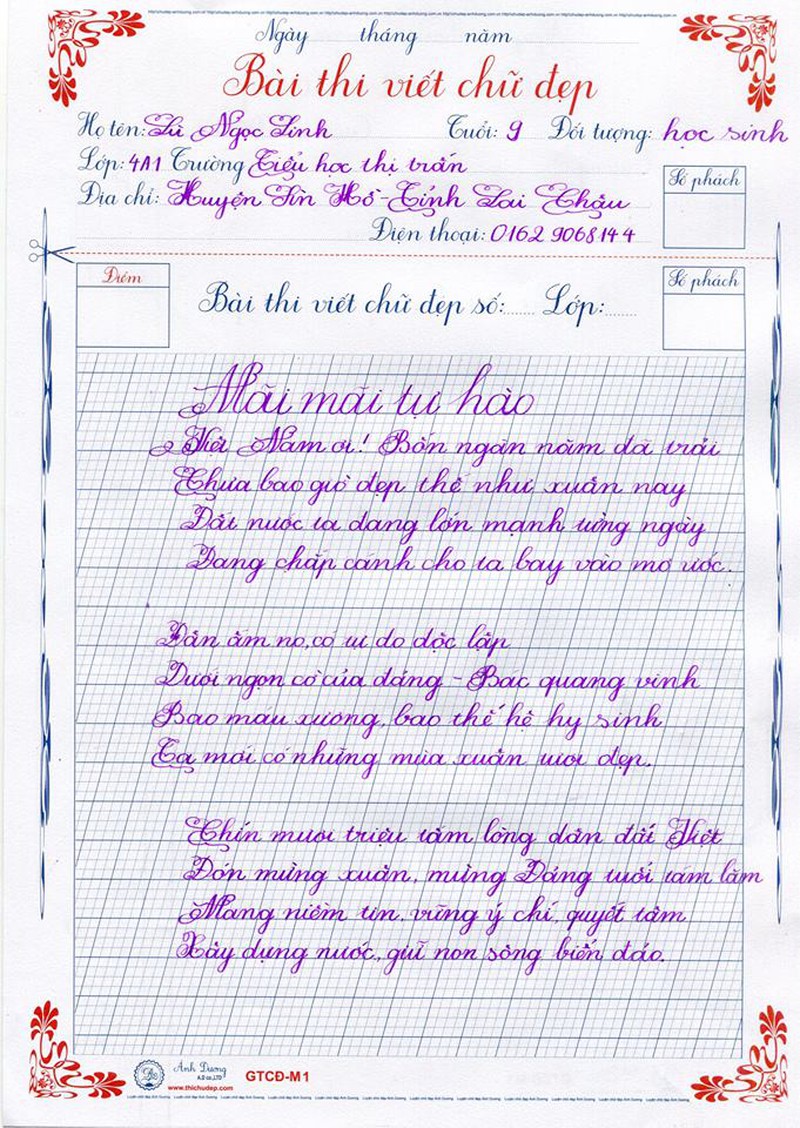 Ngày tháng năm
Bài thi viết chữ đẹp
Họ tên: Lù Ngọc Linh Tuổi: 9 Đối tượng: học sinh
Lớp: 4A1 Trường Tiểu học thị trấn
Địa chỉ: Huyện Sìn Hồ - Tỉnh Lai Châu
Số phách
Điện thoại: 0162 9068144
Điểm
Bài thi viết chữ đẹp số: Lớp:
Số phách
Mãi mãi tự hào
Việt Nam ơi! Bốn ngàn năm đã trải
Chưa bao giờ đẹp thế như xuân nay
Đất nước ta đang lớn mạnh từng ngày
Đang chắp cánh cho ta bay vào mơ ước.
Dân ấm no, có tự do độc lập
Dưới ngọn cờ của đảng - Bác quang vinh
Bao máu xương, bao thế hệ hy sinh
Ta mới có những mùa xuân tươi đẹp.
Chín mươi triệu tấm lòng dân đất Việt
Đón mừng xuân, mừng Đảng tuổi tám lăm
Mang niềm tin, vững ý chí, quyết tâm
Xây dựng nước, giữ non sông biển đảo.
Ánh Dương
A.D co.,LTD
www.thichudep.com
GTCĐ-M1